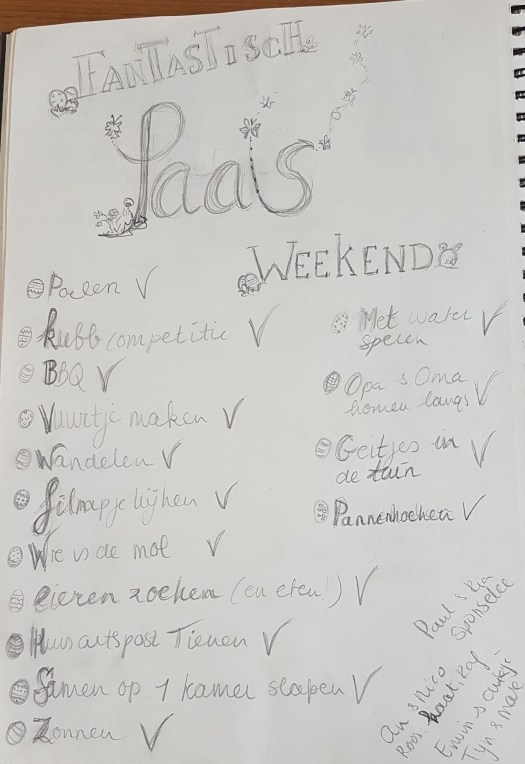 FANTASTISCH
Paas
WEEKEND
Poelen V
Kubb competitie V
BBQ V
Vuurtje maken V
Wandelen V
filmpje kijken V
Wie is de mol V
eieren zoeken (en eten!) V
Huisartspost Tienen V
Samen op 1 kamer slapen V
Zonnen V
Met water V
spelen
Opa & Oma
komen langs V
Geitjes in V
de tuin
Pannenkoeken V
Paul &
Sponselee
An & Nico
Roos,
Erwin &
Tyn &